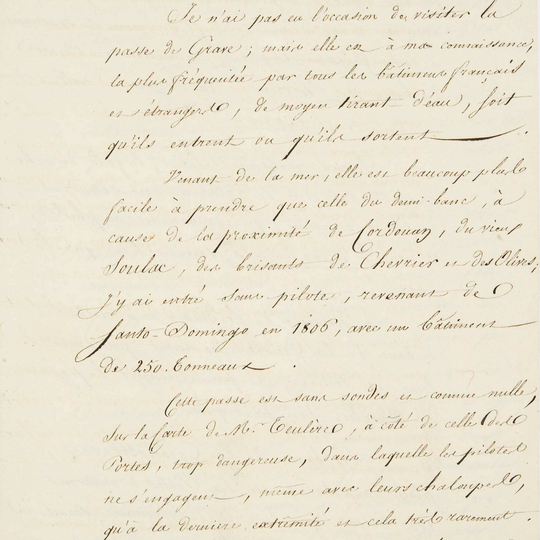 Je n'ai pas eu l'occasion de visiter la
passe de Grave ; mais elle est à ma connaissance,
la plus fréquentée par tous les bâtimens français
et étrangers, de moyen tirant d'eau, soit
qu'ils entrent ou qu'ils sortent.
Venant de la mer, elle est beaucoup plus
facile à prendre que celle du demi-banc, à
cause de la proximité de Cordouan, du vieux
Soulac, des brisants de Chevrier et des Olives;
j'y ai entré sans pilote, revenant de
Santo-Domingo en 1806, avec un bâtiment
de 250. Tonneaux.
Cette passe est sans sondes et comme nulle,
sur la Carte de Mr. Teulère, à côté de celle des
Portes, trop dangereuse, dans laquelle les pilotes
ne s'engagent, même avec leurs chaloupes,
qu'à la dernière extrémité et cela très rarement.